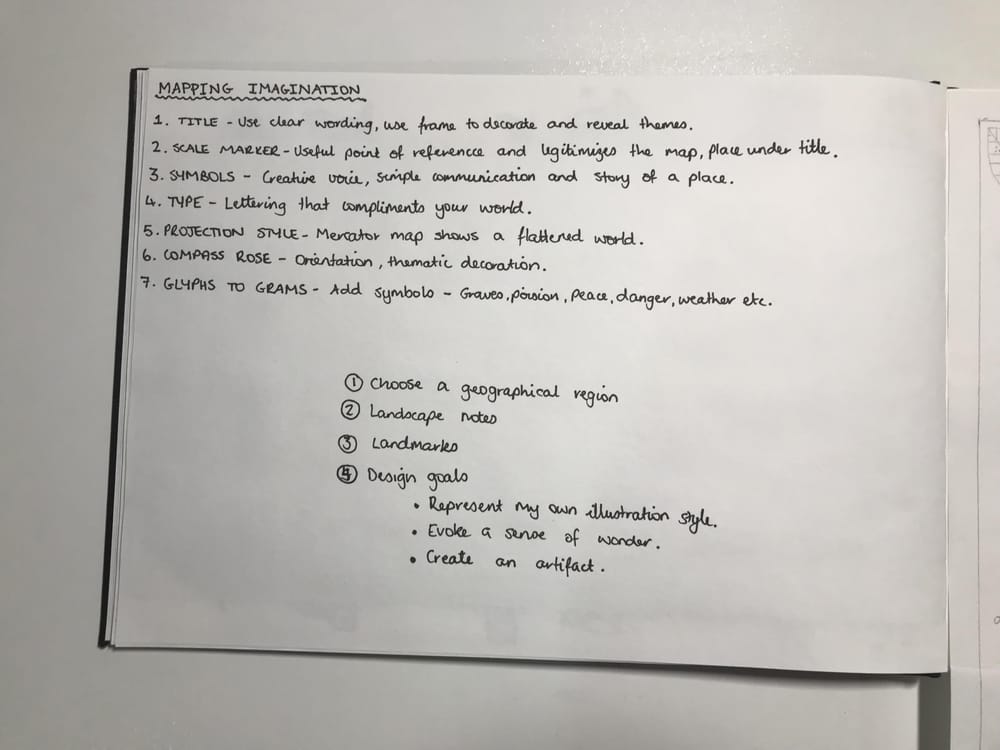 MAPPING IMAGINATION
1. TITLE - Use clear wording, use frame to decorate and reveal themes.
2. SCALE MARKER - Useful point of reference and legitimizes the map, place under title.
3. SYMBOLS - Creative voice, simple communication and story of a place.
4. TYPE - Lettering that compliments your world.
5. PROJECTION STYLE - Mercator map shows a flattened world.
6. COMPASS ROSE - Orientation, thematic decoration.
7. GLYPHS TO GRAMS - Add symbols - Graves, poision, peace, danger, weather etc.
① Choose a geographical region
② Landscape notes
③ Landmarks
④ Design goals
• Represent my own illustration style.
• Evoke a sense of wonder.
• Create an artifact.